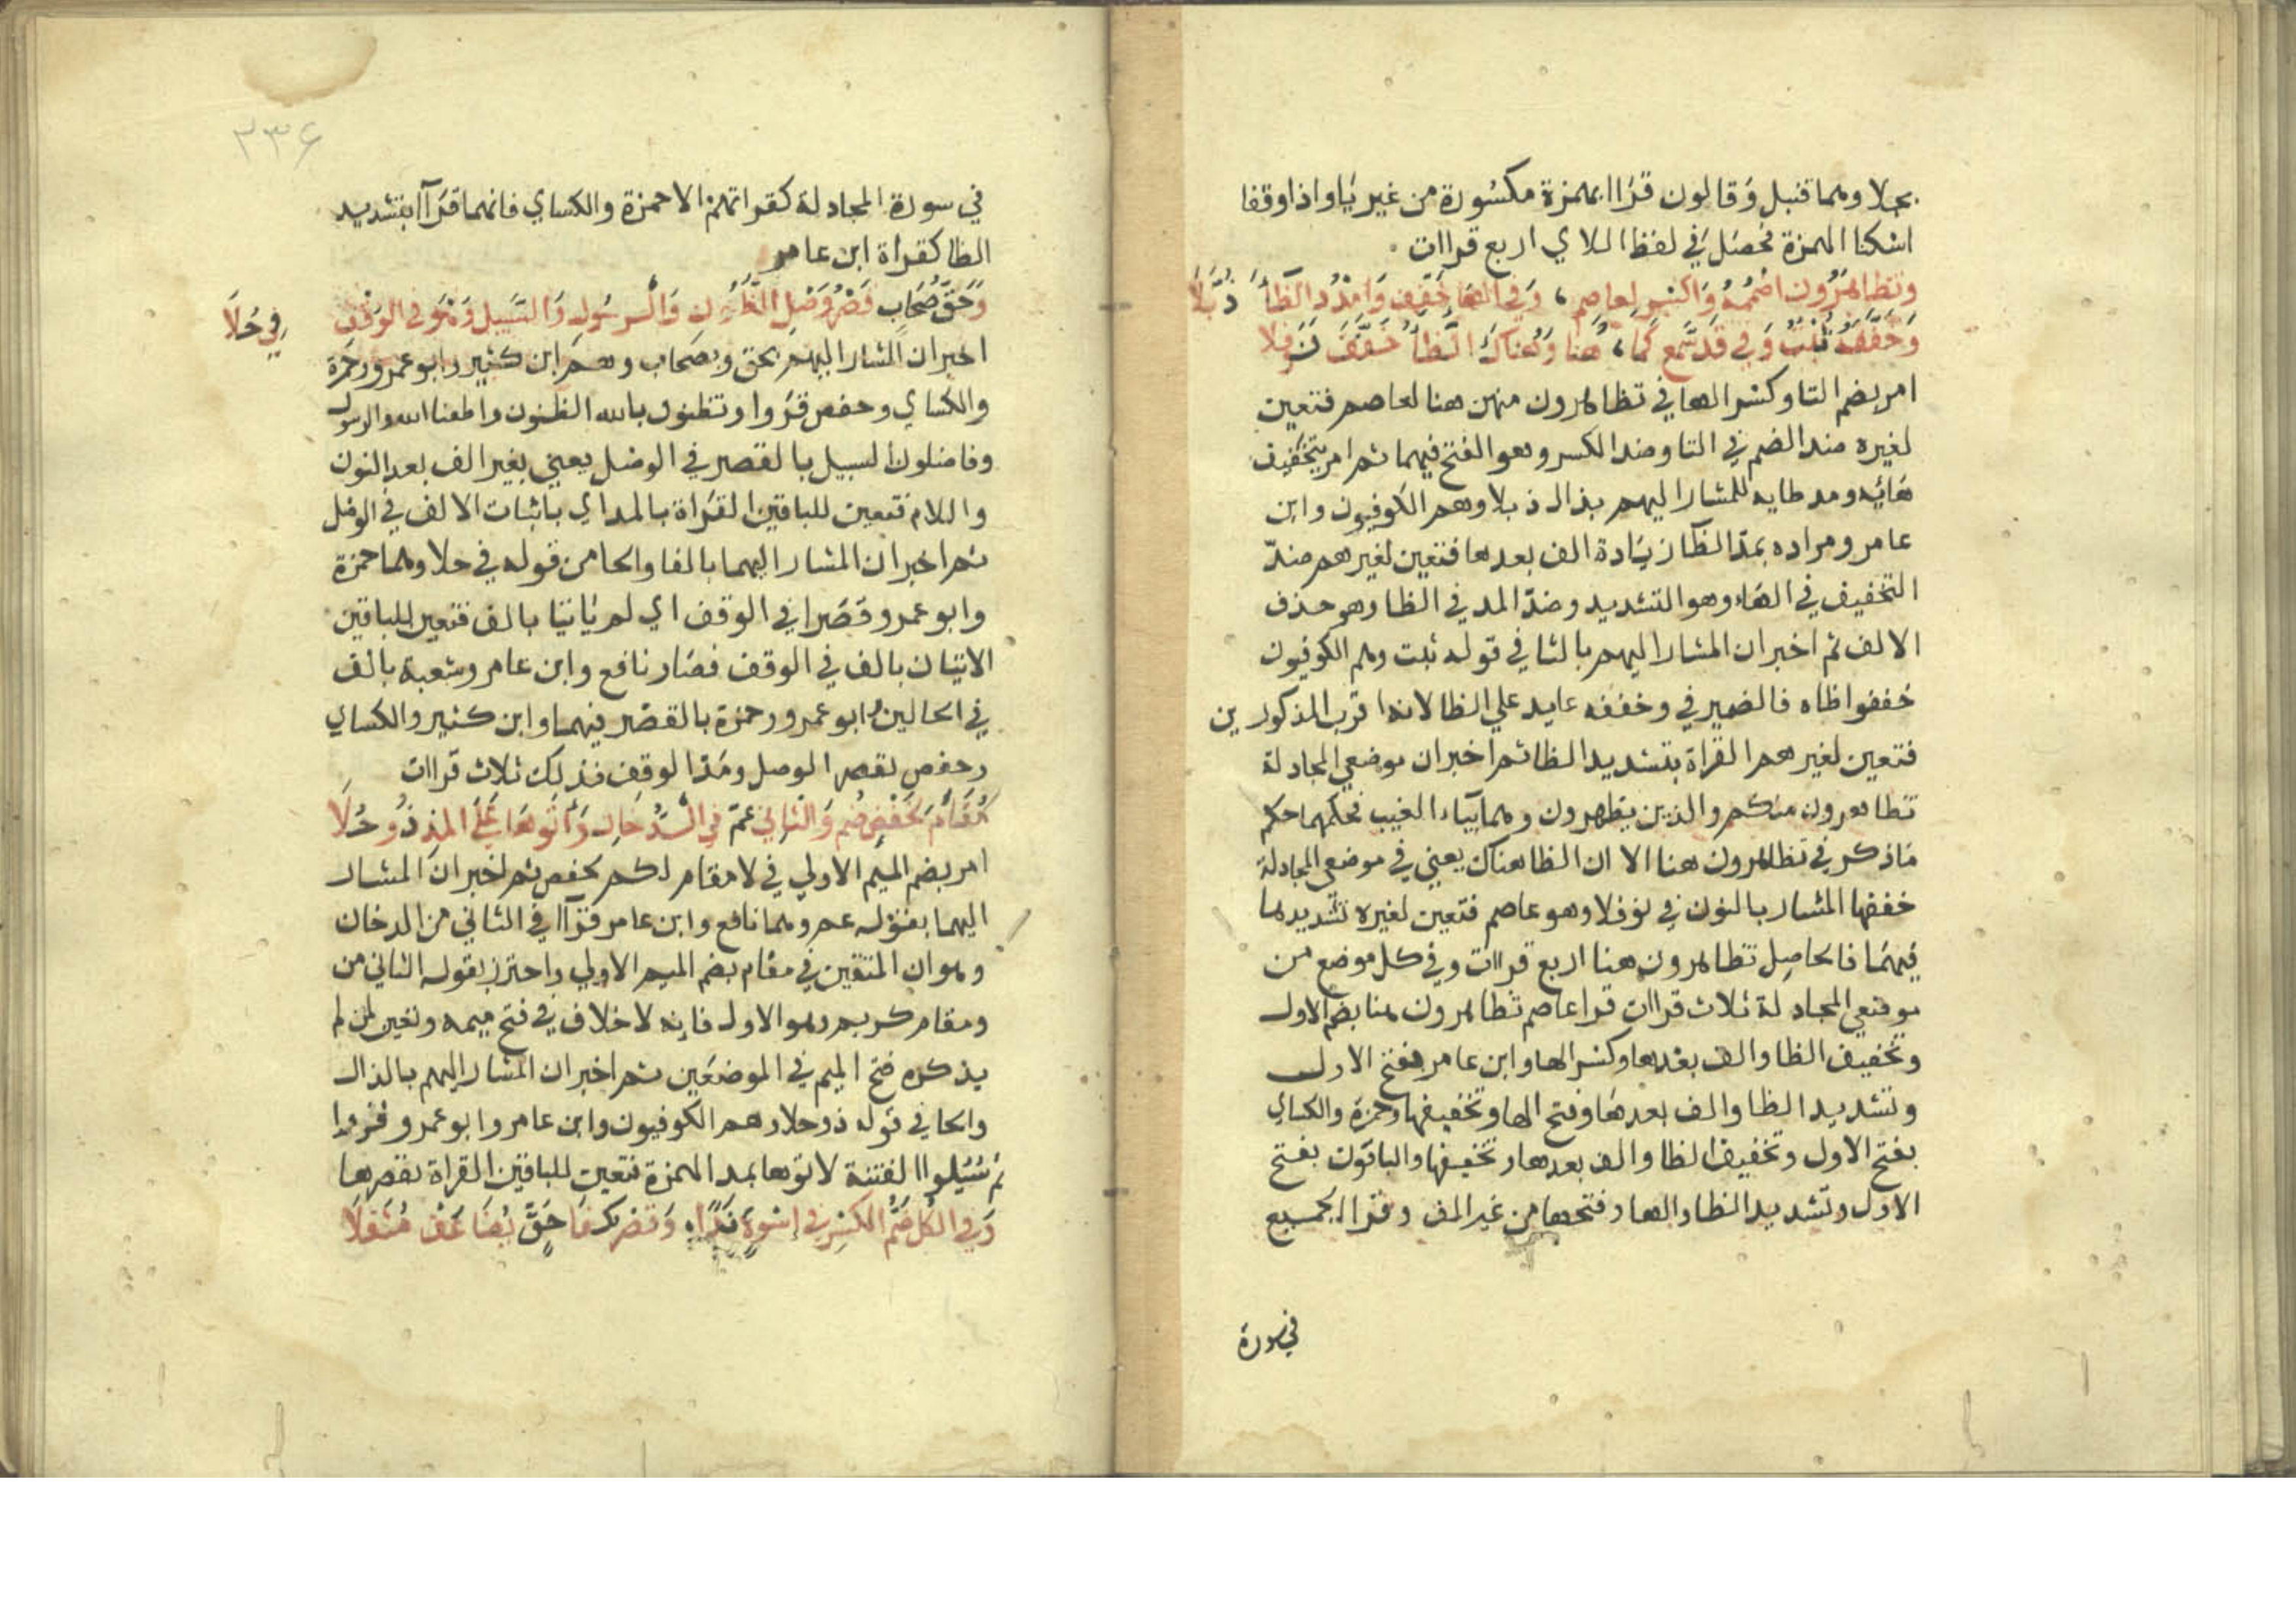 بجلا وهما قنبل وقالون قراا بهمزة مكسورة من غير يا واذا وقفا
اسكنا الهمزة فحصل في لفظ اللاي اربع قراات
وتظاهرون اضممه واكسر لعاصم، وفي الها خفف وامدد الظا ذبلا
وخففه ثبت وفي قد سمع كما، هنا وهناك الظا خفف نوفلا
امر بضم التا وكسر الها في تظاهرون منهن هنا لعاصم فتعين
لغيره ضد الضم في التا وضد الكسر وهو الفتح فيهما ثم امر بتخفيف
هائه ومد ظايه للمشار اليهم بذال ذبلا وهم الكوفيون وابن
عامر ومراده بمد الظا زيادة الف بعدها فتعين لغيرهم ضد
التخفيف في الهاء وهو التشديد وضد المد في الظا وهو حذف
الالف ثم اخبر ان المشار اليهم بالثا في قوله ثبت وهم الكوفيون
خففوا ظاه فالضمير في وخففه عايد علي الظا لانه اقرب المذكورين
فتعين لغيرهم القراة بتشديد الظا ثم اخبر ان موضعي المجادلة
تظاهرون منكم والذين يظهرون وهما بياء الغيب فحكمهما حكم
ما ذكر في تظاهرون هنا الا ان الظا هناك يعني في موضعي المجادلة
خففها المشار بالنون في نوفلا وهو عاصم فتعين لغيره تشديدها
فيهما فالحاصل تظاهرون هنا اربع قراات وفي كل موضع من
موضعي المجادلة ثلاث قراات قرا عاصم تظاهرون هنا بضم الاول
وتخفيف الظا والف بعدها وكسر الها وابن عامر بفتح الاول
وتشديد الظا والف بعدها وفتح الها وتخفيفها وحمزة والكساي
بفتح الاول وتخفيف الظا والف بعدها وتخفيفها والباقون بفتح
الاول وتشديد الظا والها وفتحها من غير الف وقرا الجميع
في سورة
٣٣٦
في سورة المجادلة كقراتهم الا حمزة والكساي فانهما قراآ بتشديد
الظا كقراة ابن عامر
وحق صحاب قصر وصل الظنون والرسول والسبيل وهو في الوقف في حلا
اخبر ان المشار اليهم بحق وبصحاب وهم ابن كثير وابو عمرو وحمزة
والكساي وحفص قروا وتظنون بالله الظنون واطعنا الله والرسول
وفاضلون السبيل بالقصر في الوصل يعني بغير الف بعد النون
واللام فتعين للباقين القراة بالمد اي باثبات الالف في الوصل
ثم اخبر ان المشار اليهما بالفا والحا من قوله في حلا وهما حمزة
وابو عمرو قصرا في الوقف اي لم ياتيا بالف فتعين للباقين
الاتيان بالف في الوقف فصار نافع وابن عامر وشعبة بالف
في الحالين وابو عمرو وحمزة بالقصر فيهما وابن كثير والكساي
وحفص بقصر الوصل ومد الوقف فذلك ثلاث قراات
مقام لحفص ضم والثاني عم في الدخان وآتوها علي المد ذو حلا
امر بضم الميم الاولي في لا مقام لكم لحفص ثم اخبر ان المشار
اليهما بقوله عم وهما نافع وابن عامر قراآ في الثاني من الدخان
وهو ان المتقين في مقام بضم الميم الاولي واحترز بقوله الثاني من
ومقام كريم وهو الاول فانه لا خلاف في فتح ميمه وتعين لمن لم
يذكره فتح الميم في الموضعين ثم اخبر ان المشار اليهم بالذال
والحا في قوله ذو حلا وهم الكوفيون وابن عامر وابو عمرو قروا
ثم سئلوا الفتنة لاتوها بمد الهمزة فتعين للباقين القراة بقصرها
وفي الكل ضم الكسر في اسوة ندا، وقصر كفا حق يضاعف مثقلا